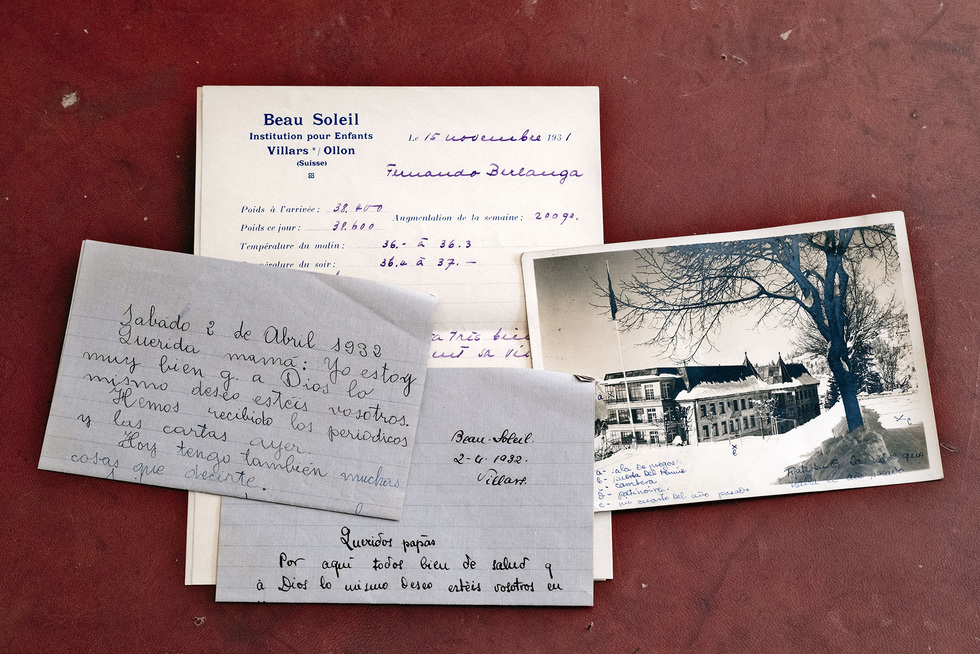 Beau Soleil
Institution pour Enfants
Villars s/ Ollon
(Suisse)
Le 15 novembre 1931
Fernando Berlanga
Poids à l'arrivée: 38.400
Poids ce jour: 38.600
Augmentation de la semaine: 200 gr.
Température du matin: 36.- à 36.3
Température du soir: 36.4 à 37.-
très bien
sa
Sabado 2 de Abril 1932
Querida mamá: Yo estoy
muy bien q. a Dios lo
mismo deseo estéis vosotros.
Hemos recibido los periodicos
y las cartas ayer.
Hoy tengo también muchas
cosas que decirte.
Beau-Soleil.
2-4-1932.
Villars.
Queridos papás
Por aquí todos bien de salud q
à Dios lo mismo deseo estéis vosotros en
a- sala de juegos.
b- puerta del
c-
d- patinoire.
e- mi cuarto del año pasado